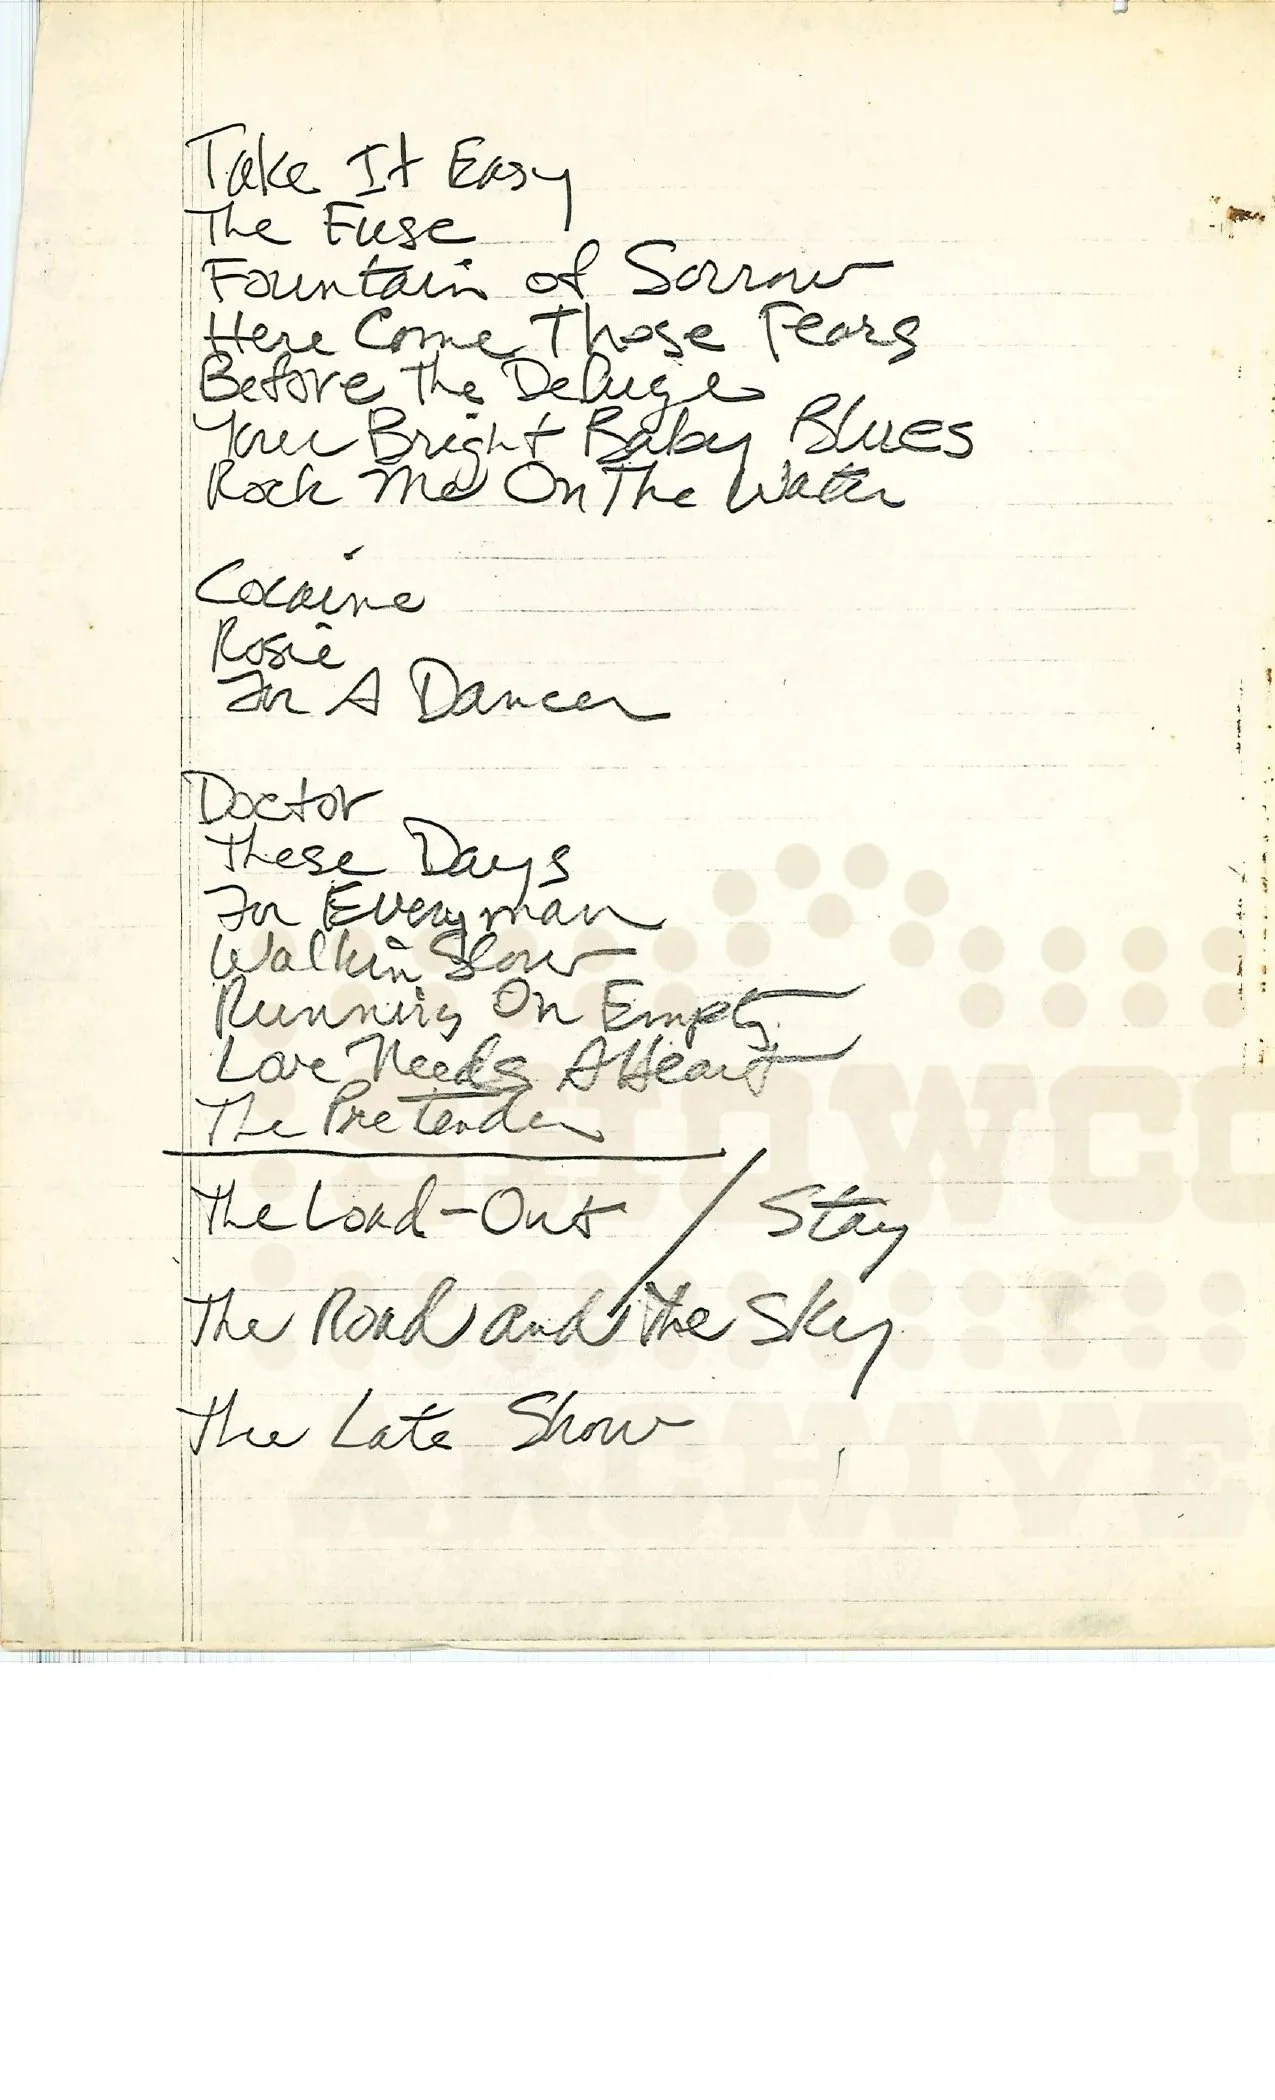 Take It Easy
The Fuse
Fountain of Sorrow
Here Come Those Tears
Before The Deluge
Your Bright Baby Blues
Rock Me On The Water
Cocaine
Rosie
For A Dancer
Doctor
These Days
For Everyman
Walkin Slow
Running On Empty
Love Needs A Heart
The Pretender
The Load-Out / Stay
The Road and the Sky
The Late Show
SHOWCO
ARCHIVE